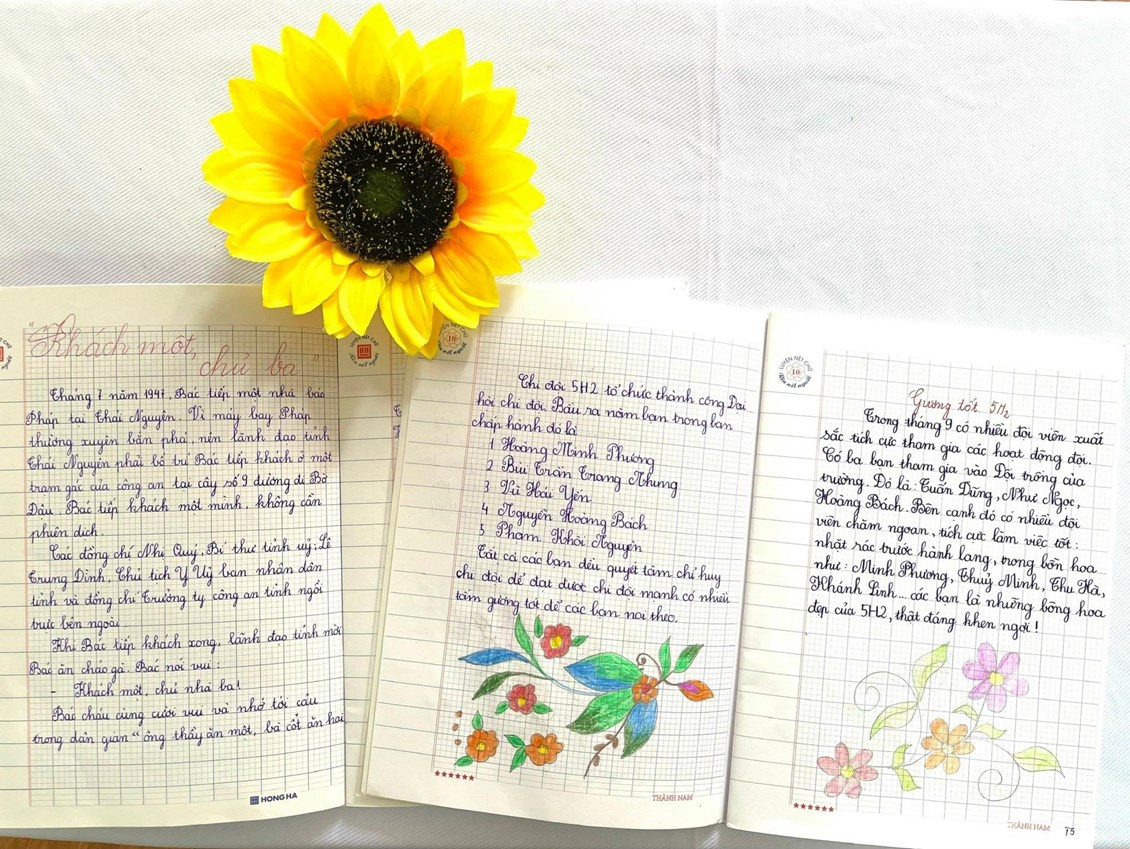 "Khách một,
chủ ba"
Tháng 7 năm 1947, Bác tiếp một nhà báo
Pháp tại Thái Nguyên. Vì máy bay Pháp
thường xuyên bắn phá, nên lãnh đạo tỉnh
Thái Nguyên phải bố trí Bác tiếp khách ở một
trạm gác của công an tại cây số 9 đường đi Bờ
Đậu. Bác tiếp khách một mình, không cần
phiên dịch.
Các đồng chí Nhị Quý, Bí thư tỉnh uỷ; Lê
Trung Đình, Chủ tịch Uỷ ban nhân dân
tỉnh và đồng chí Trưởng ty công an tỉnh ngồi
trực bên ngoài.
Khi Bác tiếp khách xong, lãnh đạo tỉnh mời
Bác ăn cháo gà. Bác nói vui:
- Khách một, chủ nhà ba!
Bác cháu cùng cười vui và nhớ tới câu
trong dân gian "ông thầy ăn một, bà cốt ăn hai
HONG HA
LUYỆN NÉT CHỮ
Rèn nết người
10
Chi đội 5H2 tổ chức thành công Đại
hội chi đội. Bầu ra năm bạn trong ban
chấp hành đó là
1 Hoàng Minh Phương
2 Bùi Trần Trang Nhung
3 Vũ Hải Yến
4 Nguyễn Hoàng Bách
5 Phạm Khôi Nguyên
Tất cả các bạn đều quyết tâm chỉ huy
chi đội để đạt được chi đội mạnh có nhiều
tấm gương tốt để các bạn noi theo.
THÀNH NAM
LUYỆN NÉT CHỮ
Rèn nết người
10
Gương tốt 5H2
Trong tháng 9 có nhiều đội viên xuất
sắc tích cực tham gia các hoạt động đội.
Có ba bạn tham gia vào Đội trống của
trường. Đó là: Tuấn Dũng, Như Ngọc,
Hoàng Bách. Bên cạnh đó có nhiều đội
viên chăm ngoan, tích cực làm việc tốt:
nhặt rác trước hành lang, trong bồn hoa
như: Minh Phương, Thuỳ Minh, Thu Hà,
Khánh Linh... các bạn là những bông hoa
đẹp của 5H2, thật đáng khen ngợi!
THÀNH NAM
75